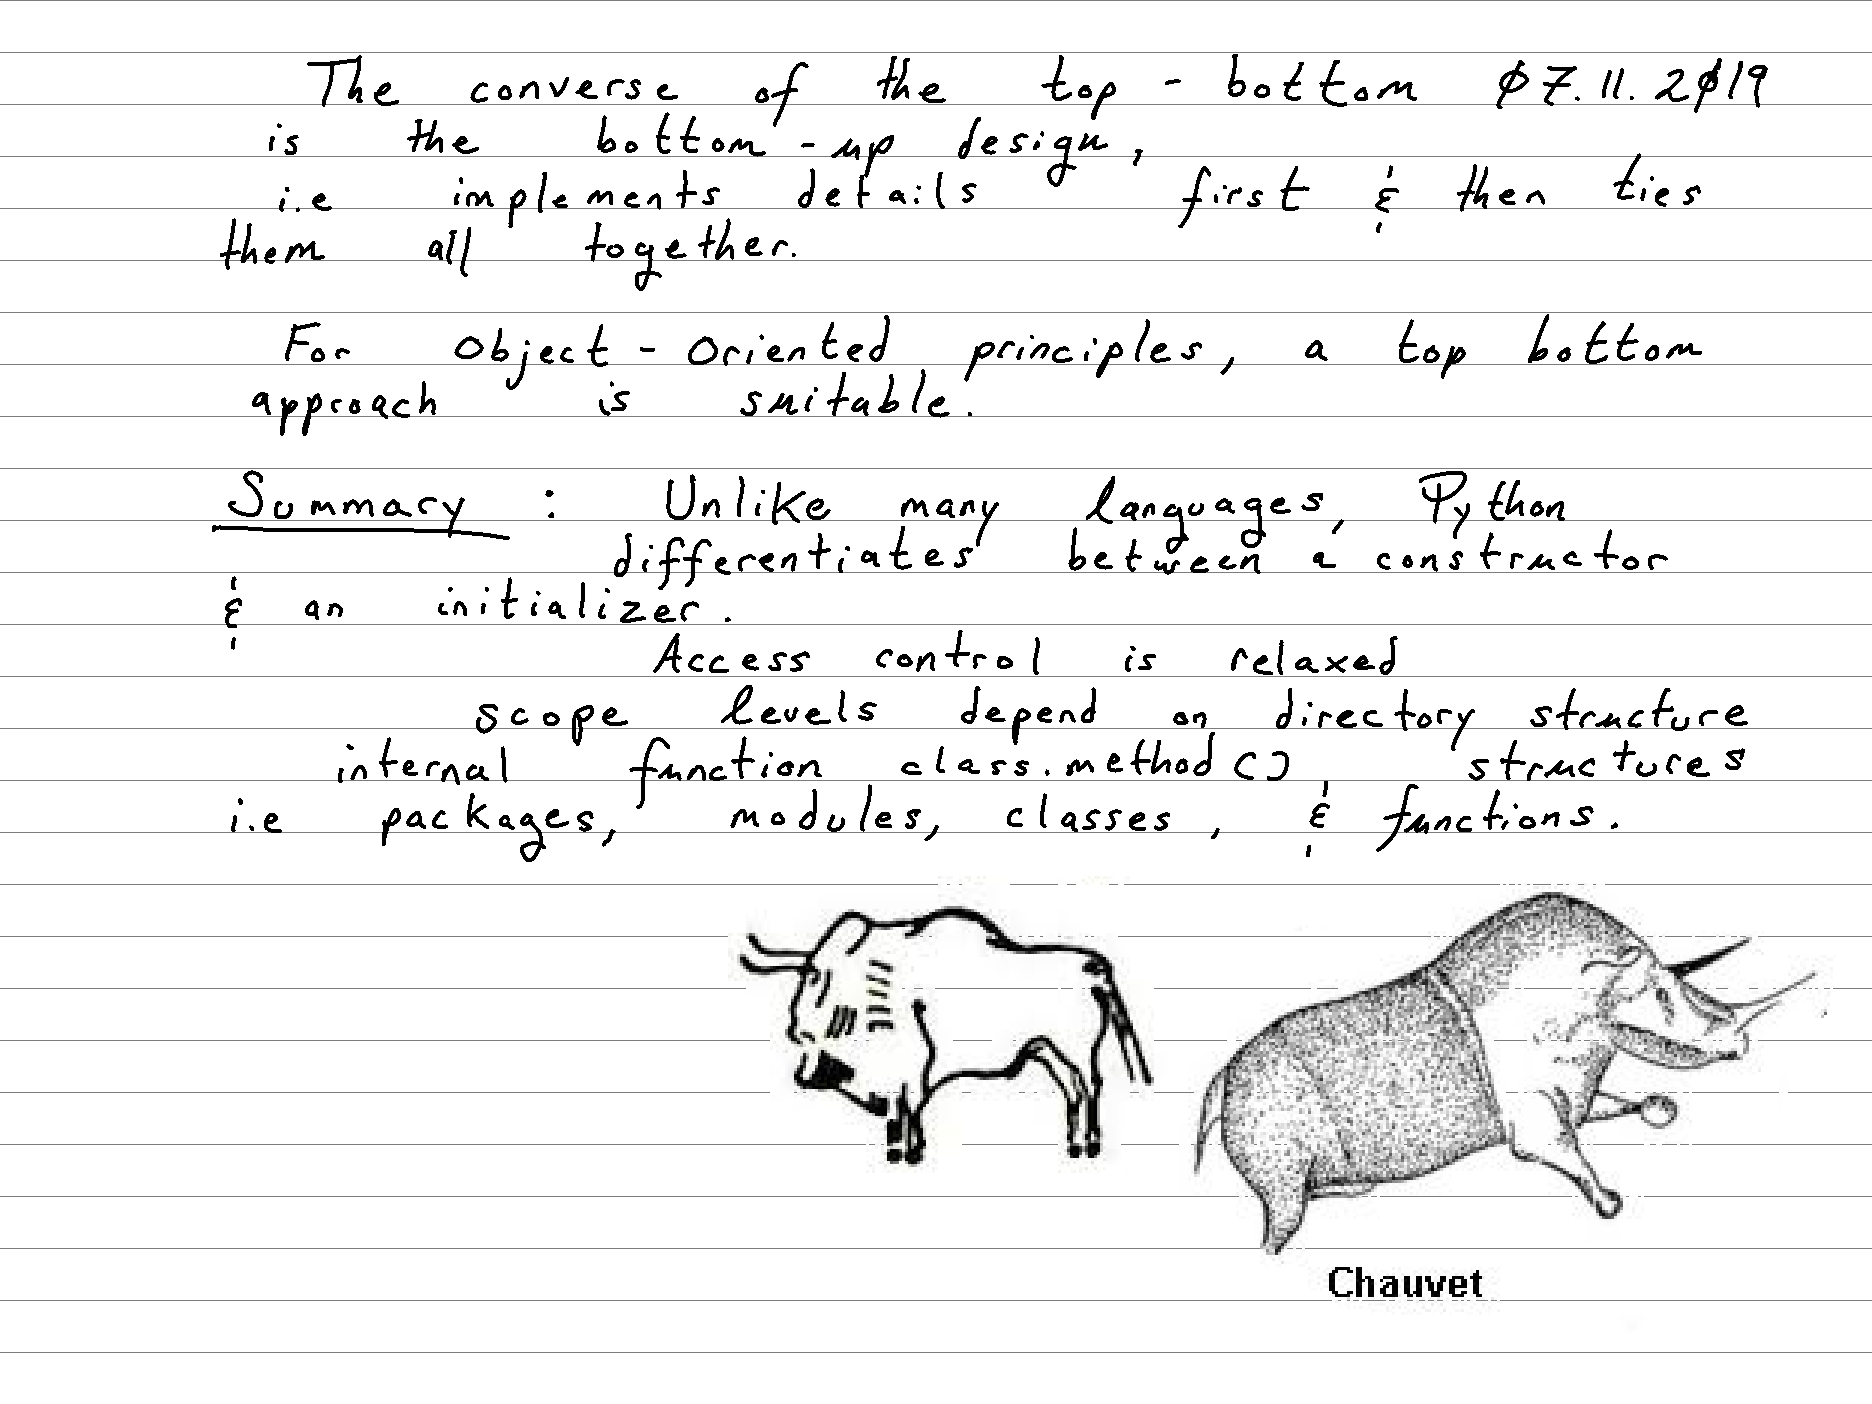 The converse of the top - bottom 07.11.2019
is the bottom - up design,
i.e implements details first & then ties
them all together.
For Object - Oriented principles, a top bottom
approach is suitable.
Summary : Unlike many languages, Python
differentiates between a constructor
& an initializer.
Access control is relaxed
scope levels depend on directory structure
internal function class.method(), structures
i.e packages, modules, classes, & functions.
Chauvet